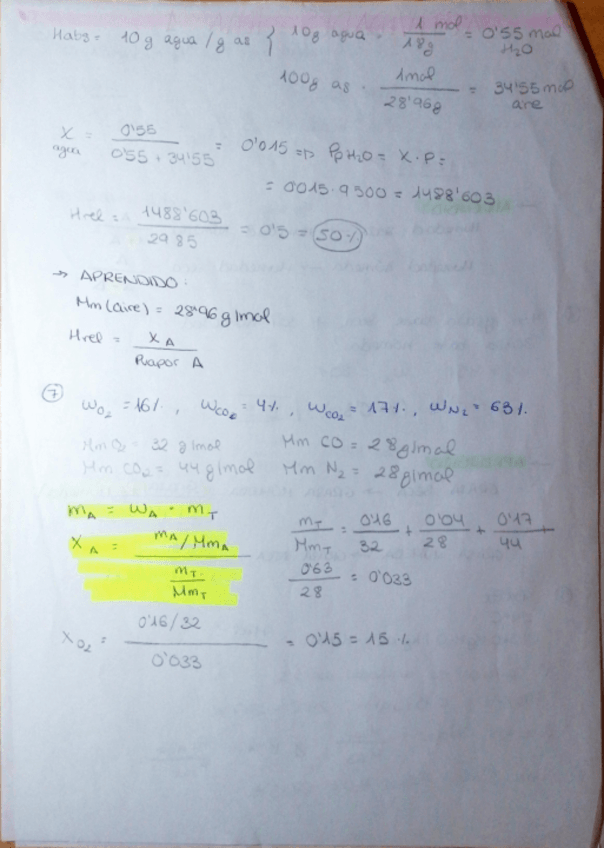 Habs = 10 g agua / g as { 10g agua · 1 mol / 18g = 0'55 mol H₂O
100g as · 1mol / 28'96g = 34'55 mol aire
X agua = 0'55 / 0'55 + 34'55 = 0'015 => PpH₂O = X · P =
= 0'015 · 99300 = 1488'603
Hrel = 1488'603 / 2985 = 0'5 = 50%
→ APRENDIDO:
Mm (aire) = 28'96 g/mol
Hrel = X A / Pvapor A
7 WO₂ = 16%, WCO = 4%, WCO₂ = 17%, WN₂ = 63%
Mm O₂ = 32 g/mol Mm CO = 28g/mol
Mm CO₂ = 44 g/mol Mm N₂ = 28g/mol
mA = WA · mT
XA = mA / MmA / mT / MmT
mT / MmT = 0'16 / 32 + 0'04 / 28 + 0'17 / 44 +
0'63 / 28 = 0'033
XO₂ = 0'16/32 / 0'033 = 0'15 = 15%